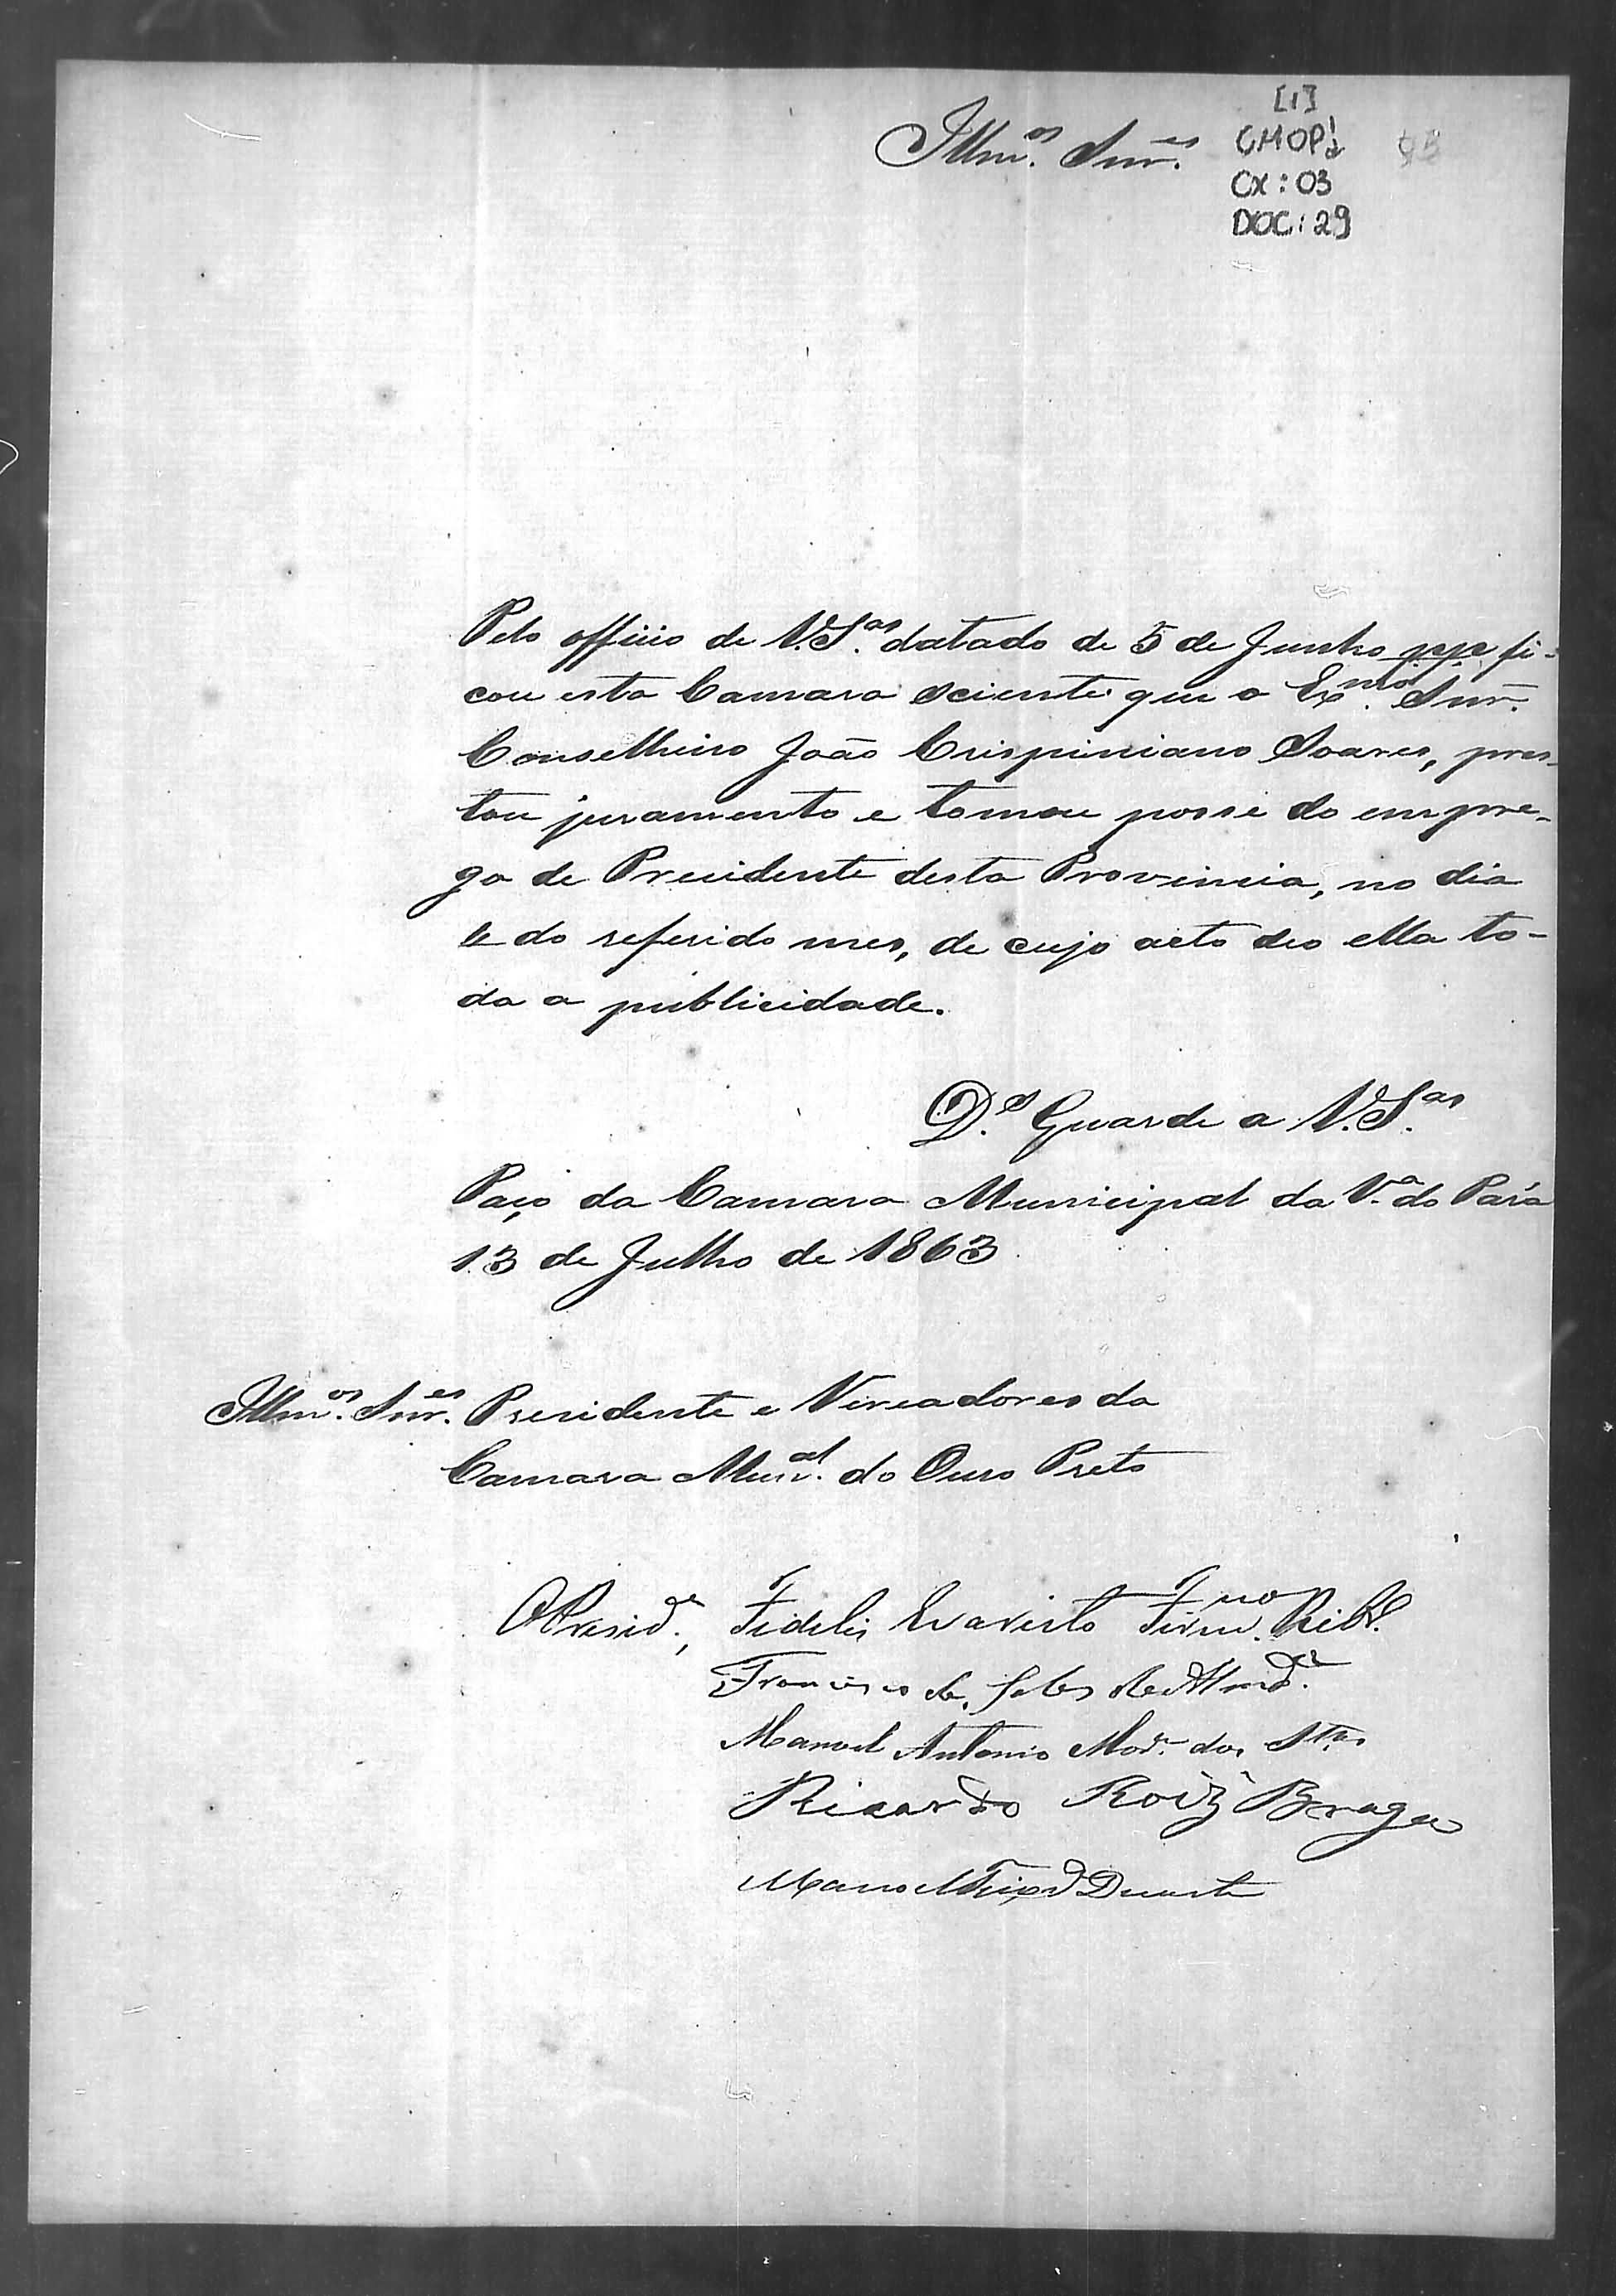 Illm.os Snr.es
[1]
CMOP
Cx: 03
DOC: 29
Pelo officio de V.S.as datado de 5 de Junho pp. fi-
cou esta Camara sciente que o Ex.mo Snr.
Conselheiro João Crispiniano Soares, pres-
tou juramento e tomou posse do empre-
go de Presidente desta Provincia, no dia
do referido mes, de cujo acto deo ella to-
da a publicidade.
D.s Guarde a V.S.as
Paço da Camara Municipal da V.a do Pará
13 de Julho de 1863
Illm.os Snr.es Presidente e Vereadores da
Camara Mun.al do Ouro Preto
O Presid.e, Fidelis Evaristo Rib.
Francisco de Sales de Almd.a
Manoel Antonio dos St.os
Ricardo Roiz Braga
Manoel Duarte